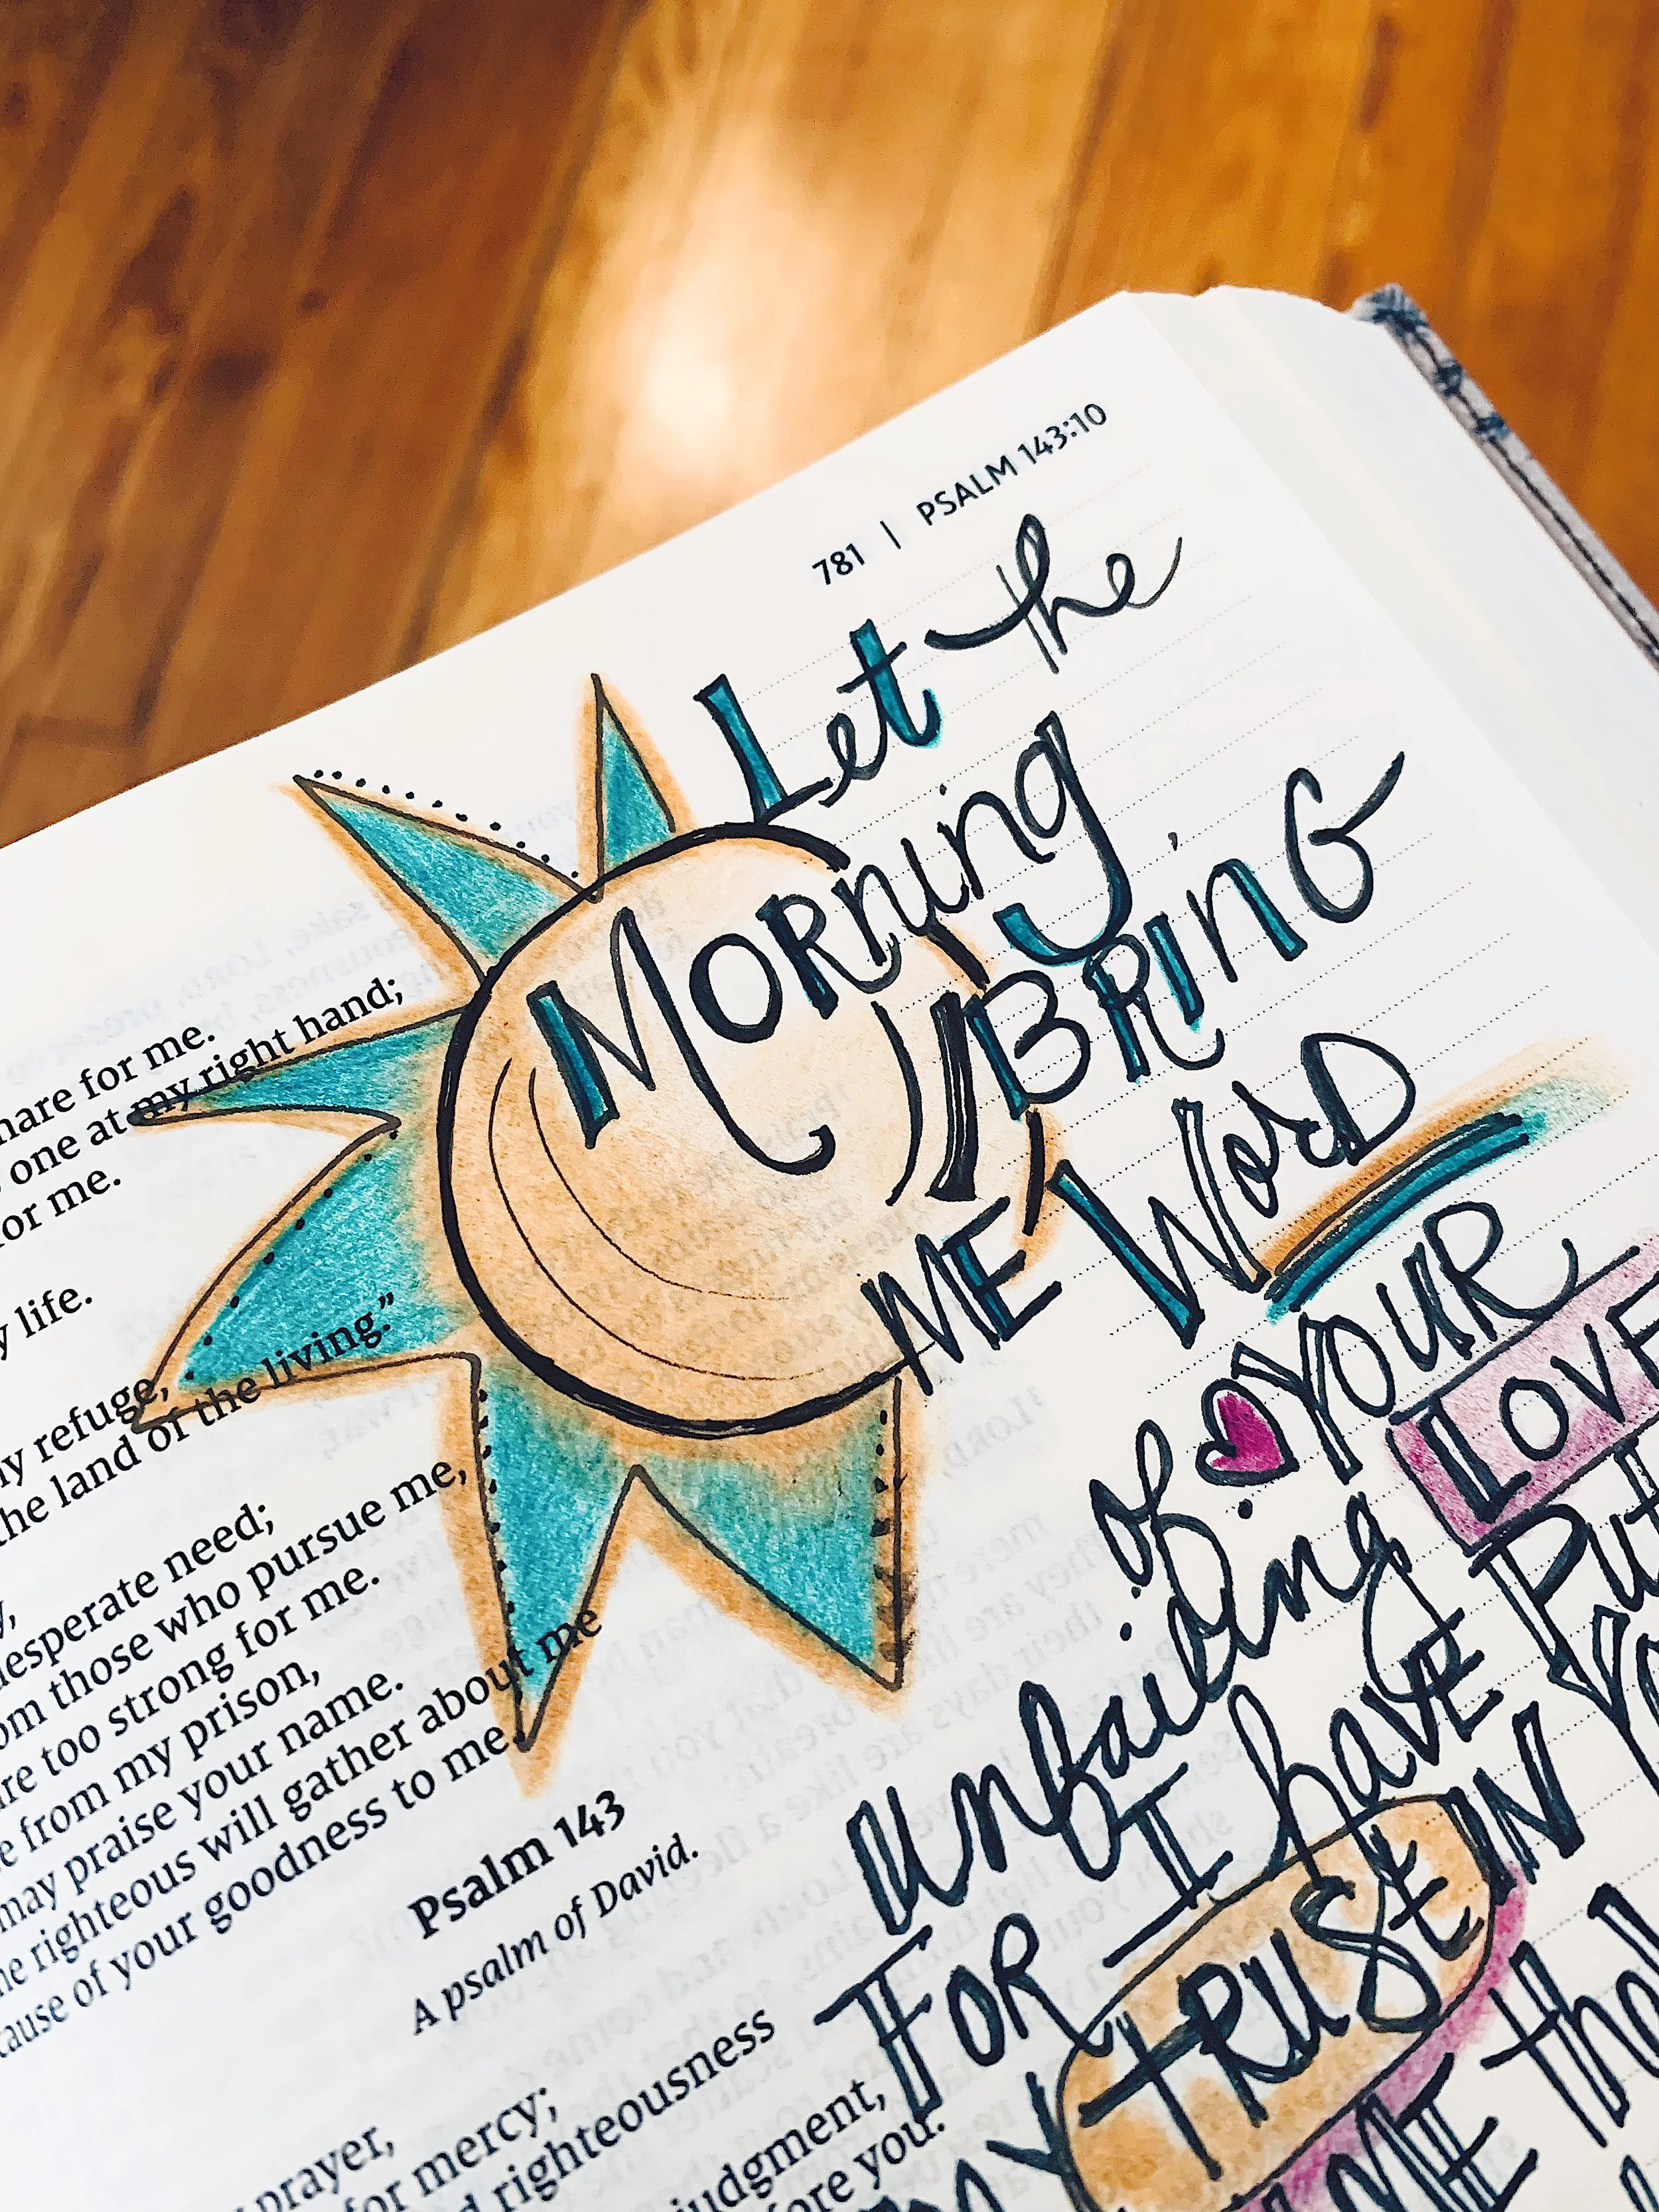 781 | PSALM 143:10
Let the
Morning
BRING
ME Word
of YOUR
unfailing LOVE
FOR I have Put
MY TRUST IN
ME
for me.
one at my right hand;
for me.
life.
refuge,
the land of the living.”
desperate need;
from those who pursue me,
too strong for me.
from my prison,
may praise your name.
righteous will gather about me
of your goodness to me.
Psalm 143
A psalm of David.
prayer,
for mercy;
righteousness
judgment,
you.